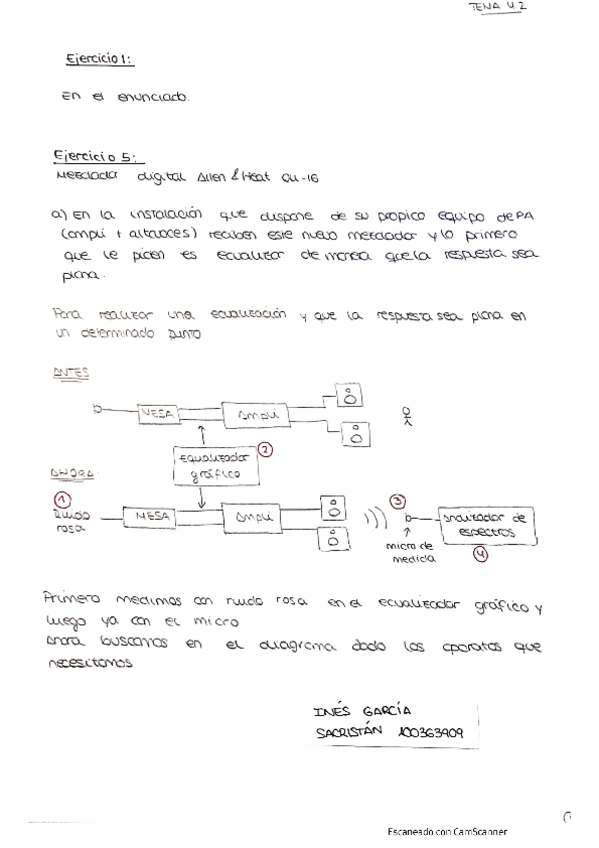 TEMA 4.2
Ejercicio 1:
En el enunciado.
Ejercicio 5:
Mezclada digital Allen & Heat QU-16
a) En la instalación que dispone de su propico equipo de PA
(ampli + altavoces) reciben este nuevo mezclador y lo primero
que le piden es ecualizar de manera que la respuesta sea
plana.
Para realizar una ecualización y que la respuesta sea plana en
un determinado punto
ANTES
MESA
Ampli
Equalizador
gráfico
2
AHORA
1
Ruido
rosa
MESA
Ampli
3
micro de
medida
analizador de
espectros
4
Primero medimos con ruido rosa en el ecualizador gráfico y
luego ya con el micro
Ahora buscamos en el diagrama dado los aparatos que
necesitamos
INÉS GARCÍA
SACRISTÁN 100363909
Escaneado con CamScanner